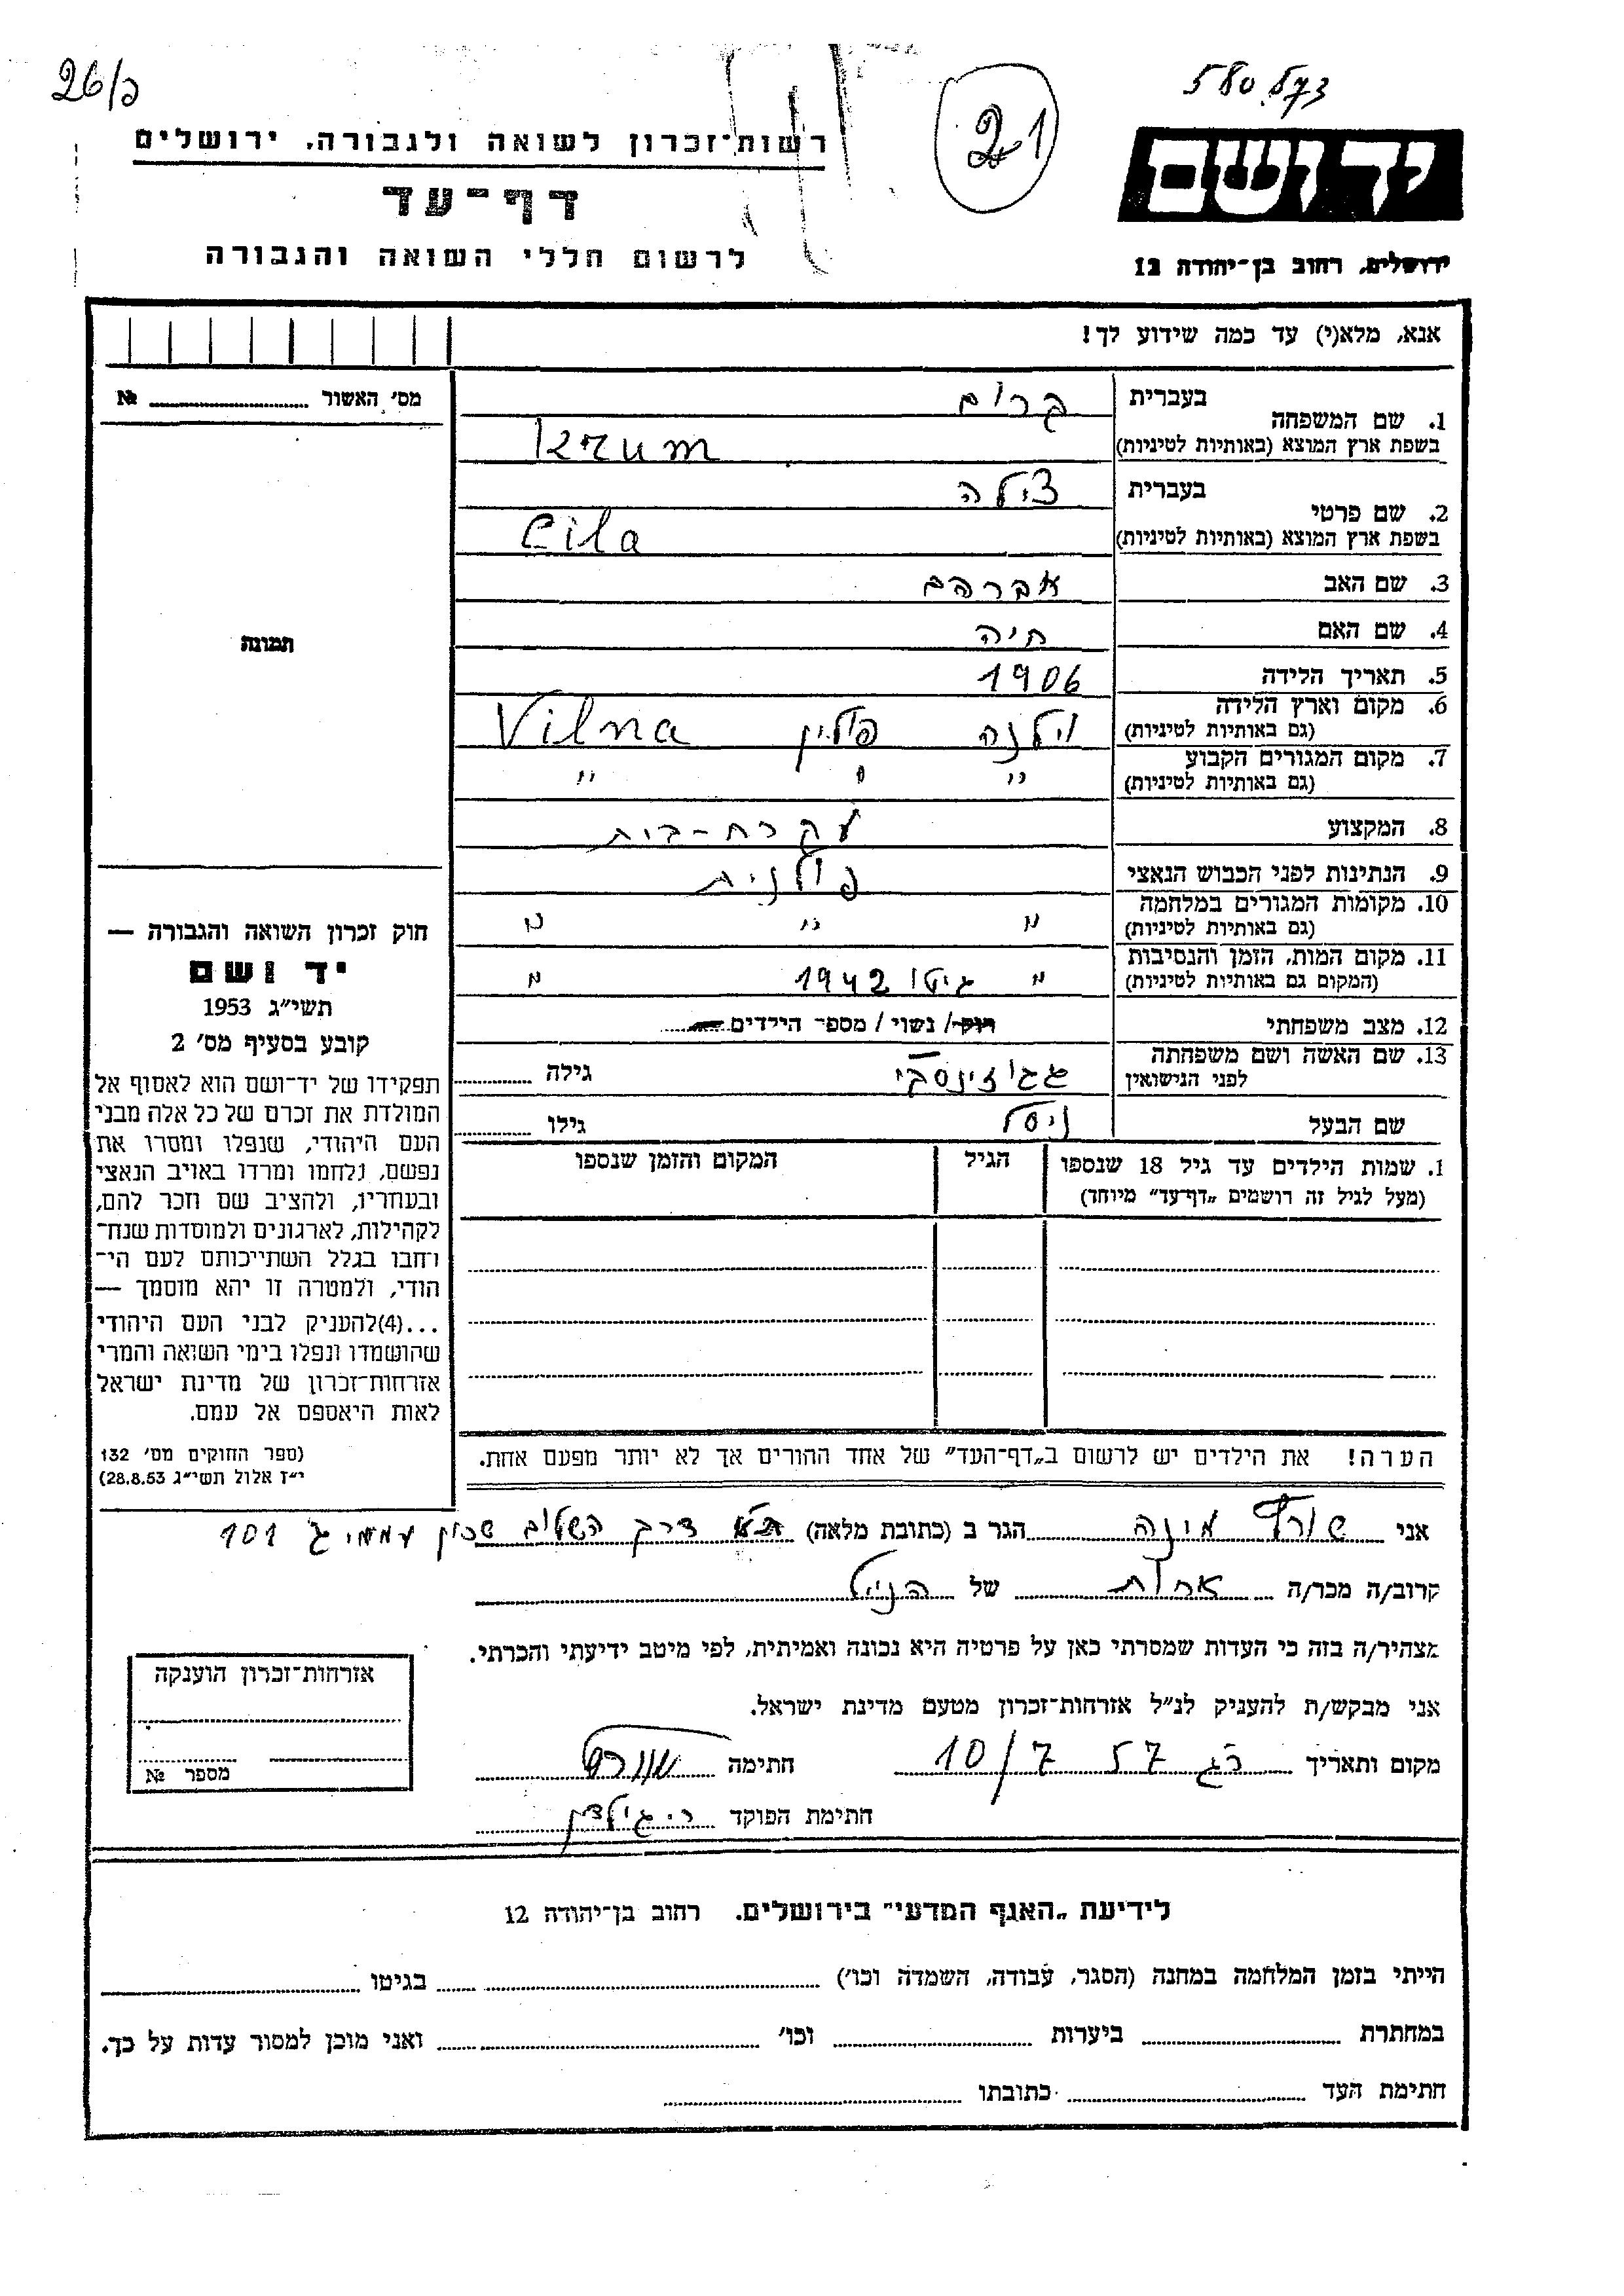 26/כ
580 573
21
יד ושם
רשות־זכרון לשואה ולגבורה, ירושלים
דף־עד
לרשום חללי השואה והגבורה
ירושלים, רחוב בן־יהודה 12
אנא, מלא(י) עד כמה שידוע לך!
מס׳ האשור № 
1. שם המשפחה בעברית קרום
בשפת ארץ המוצא (באותיות לטיניות) Krum
2. שם פרטי בעברית צילה
בשפת ארץ המוצא (באותיות לטיניות) Cila
3. שם האב אברהם
4. שם האם חיה
5. תאריך הלידה 1906
6. מקום וארץ הלידה (גם באותיות לטיניות) וילנה פולין Vilna
7. מקום המגורים הקבוע (גם באותיות לטיניות) " " "
8. המקצוע עקרת-בית
9. הנתינות לפני הכבוש הנאצי פולנית
10. מקומות המגורים במלחמה (גם באותיות לטיניות) " " "
11. מקום המות, הזמן והנסיבות (המקום גם באותיות לטיניות) " גיטו 1942 "
12. מצב משפחתי רווק/ נשוי/ מספר הילדים
13. שם האשה ושם משפחתה לפני הנישואין גילה
שם הבעל ניסל גילו
1. שמות הילדים עד גיל 18 שנספו (מעל לגיל זה רושמים „דף־עד״ מיוחד) הגיל המקום והזמן שנספו
הערה! את הילדים יש לרשום ב„דף־העד״ של אחד ההורים אך לא יותר מפעם אחת.
תמונה
חוק זכרון השואה והגבורה —
יד ושם
תשי״ג 1953
קובע בסעיף מס׳ 2
תפקידו של יד־ושם הוא לאסוף אל
המולדת את זכרם של כל אלה מבני
העם היהודי, שנפלו ומסרו את
נפשם, נלחמו ומרדו באויב הנאצי
ובעוזריו, ולהציב שם וזכר להם,
לקהילות, לארגונים ולמוסדות שנח־
רחבו בגלל השתייכותם לעם הי־
הודי, ולמטרה זו יהא מוסמך —
...(4)להעניק לבני העם היהודי
שהושמדו ונפלו בימי השואה והמרי
אזרחות־זכרון של מדינת ישראל
לאות היאספם אל עמם.
(ספר החוקים מס׳ 132
י״ז אלול תשי״ג 28.8.53)
אני שורץ מינה הגר ב (כתובת מלאה) ת״א דרך השלום שכון עממי ג׳ 101
קרוב/ה מכר/ה אחות של הנ״ל
מצהיר/ה בזה כי העדות שמסרתי כאן על פרטיה היא נכונה ואמיתית, לפי מיטב ידיעתי והכרתי.
אני מבקש/ת להעניק לנ״ל אזרחות־זכרון מטעם מדינת ישראל.
מקום ותאריך רג 57 10/7 חתימה שורץ
חתימת הפוקד
אזרחות־זכרון הוענקה
מספר №
לידיעת „האגף המדעי״ בירושלים. רחוב בן־יהודה 12
הייתי בזמן המלחמה במחנה (הסגר, עבודה, השמדה וכו׳) בגיטו
במחתרת ביערות וכו׳ ואני מוכן למסור עדות על כך.
חתימת העד כתובתו